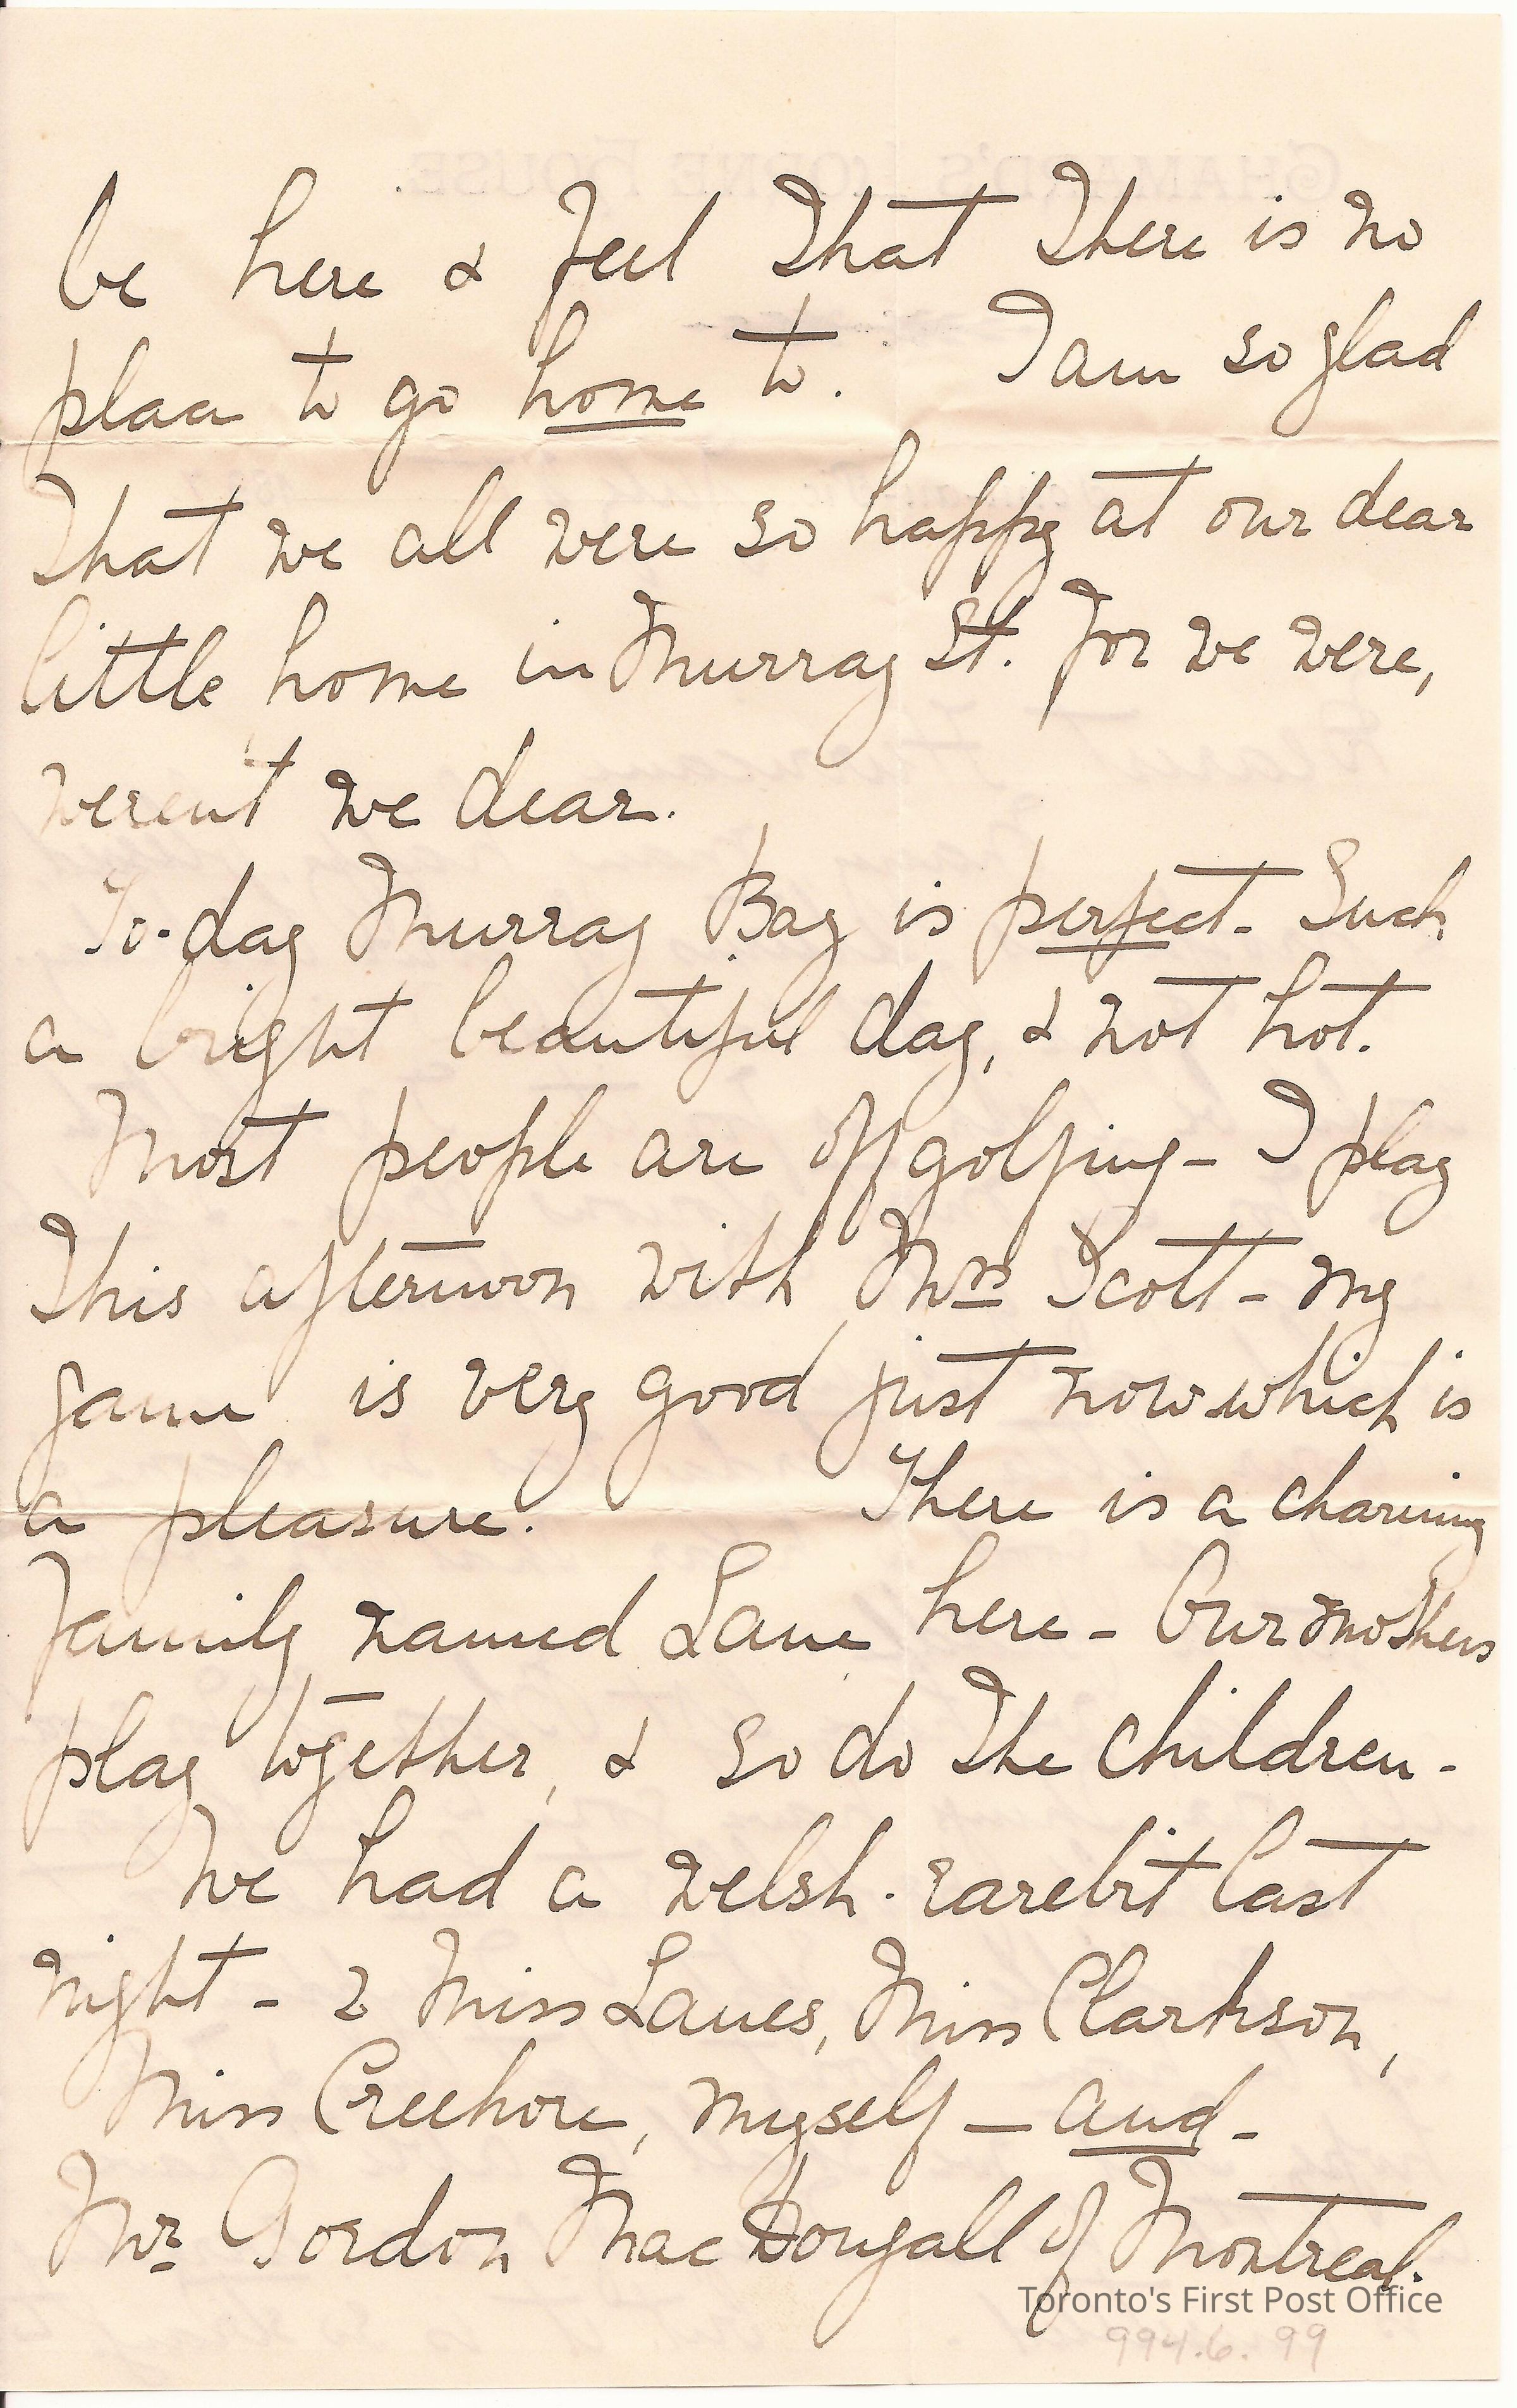 be here & feel that there is no
place to go home to. I am so glad
that we all were so happy at our dear
little home in Murray St. for we were,
weren't we dear.
To-day Murray Bay is perfect- Such
a bright beautiful day, & not hot.
Most people are off golfing- I play
this afternoon with Mrs Scott- my
game is very good just now which is
a pleasure. There is a charming
family named Lane here- Our mothers
play together, & so do the children-
We had a welsh-rarebit last
night- 2 Miss Lanes, Miss Clarkson,
Miss Creehore, myself - and -
Mr Gordon MacDougall of Montreal.
Toronto's First Post Office
994.6.99